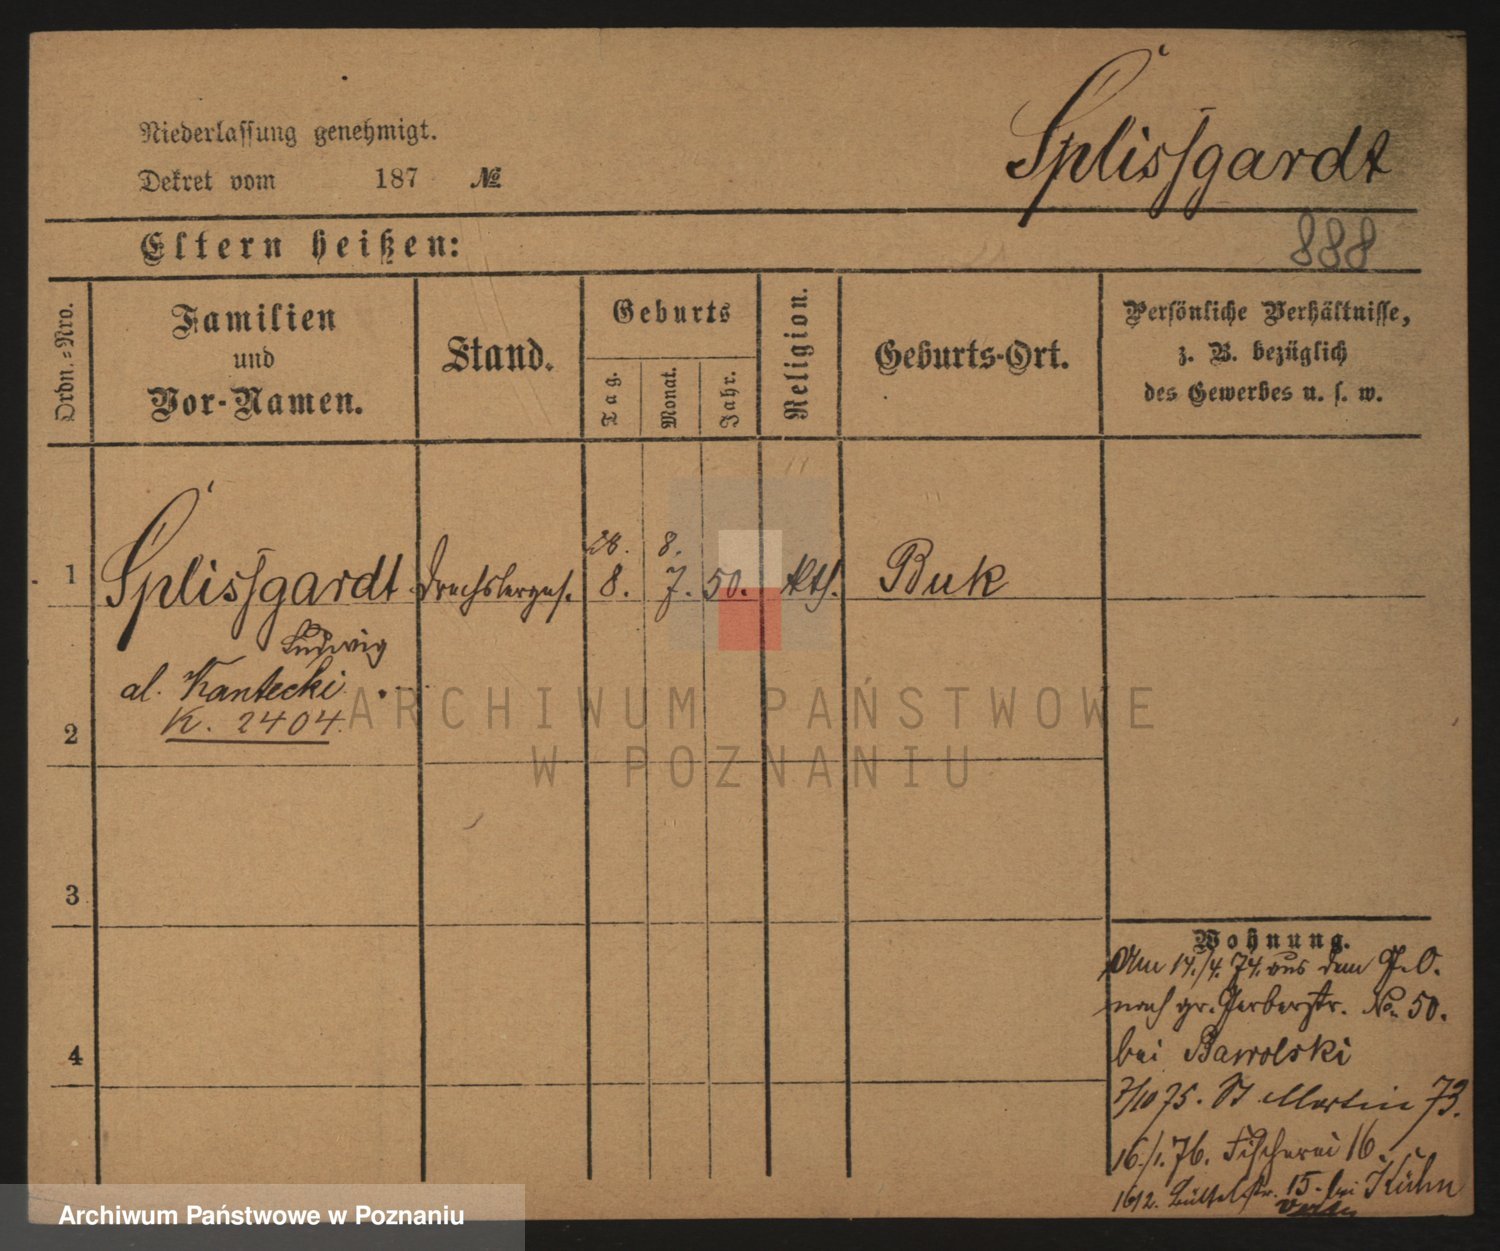 Splissgardt
Niederlassung genehmigt.
Dekret vom 187 №
Eltern heißen:
888
Ordn.-Nro.
Familien
und
Vor-Namen.
Stand.
Geburts
Tag.
Monat.
Jahr.
Religion.
Geburts-Ort.
Persönliche Verhältnisse,
z. B. bezüglich
des Gewerbes u. s. w.
28. 8.
1 Splissgardt Drechslerges. 8. 7. 50. kth. Buk
Ludwig
al. Kantecki
K. 2404.
2
ARCHIWUM PAŃSTWOWE
W POZNANIU
3
Wohnung.
Am 14./4. 74. aus dem G. O.
nach gr. Gerberstr. No. 50.
bei Bawolski
4
7/10 75. St Martin 73.
16./1. 76. Fischerei 16.
16/2. Büttelstr. 15. bei Kühn
Archiwum Państwowe w Poznaniu